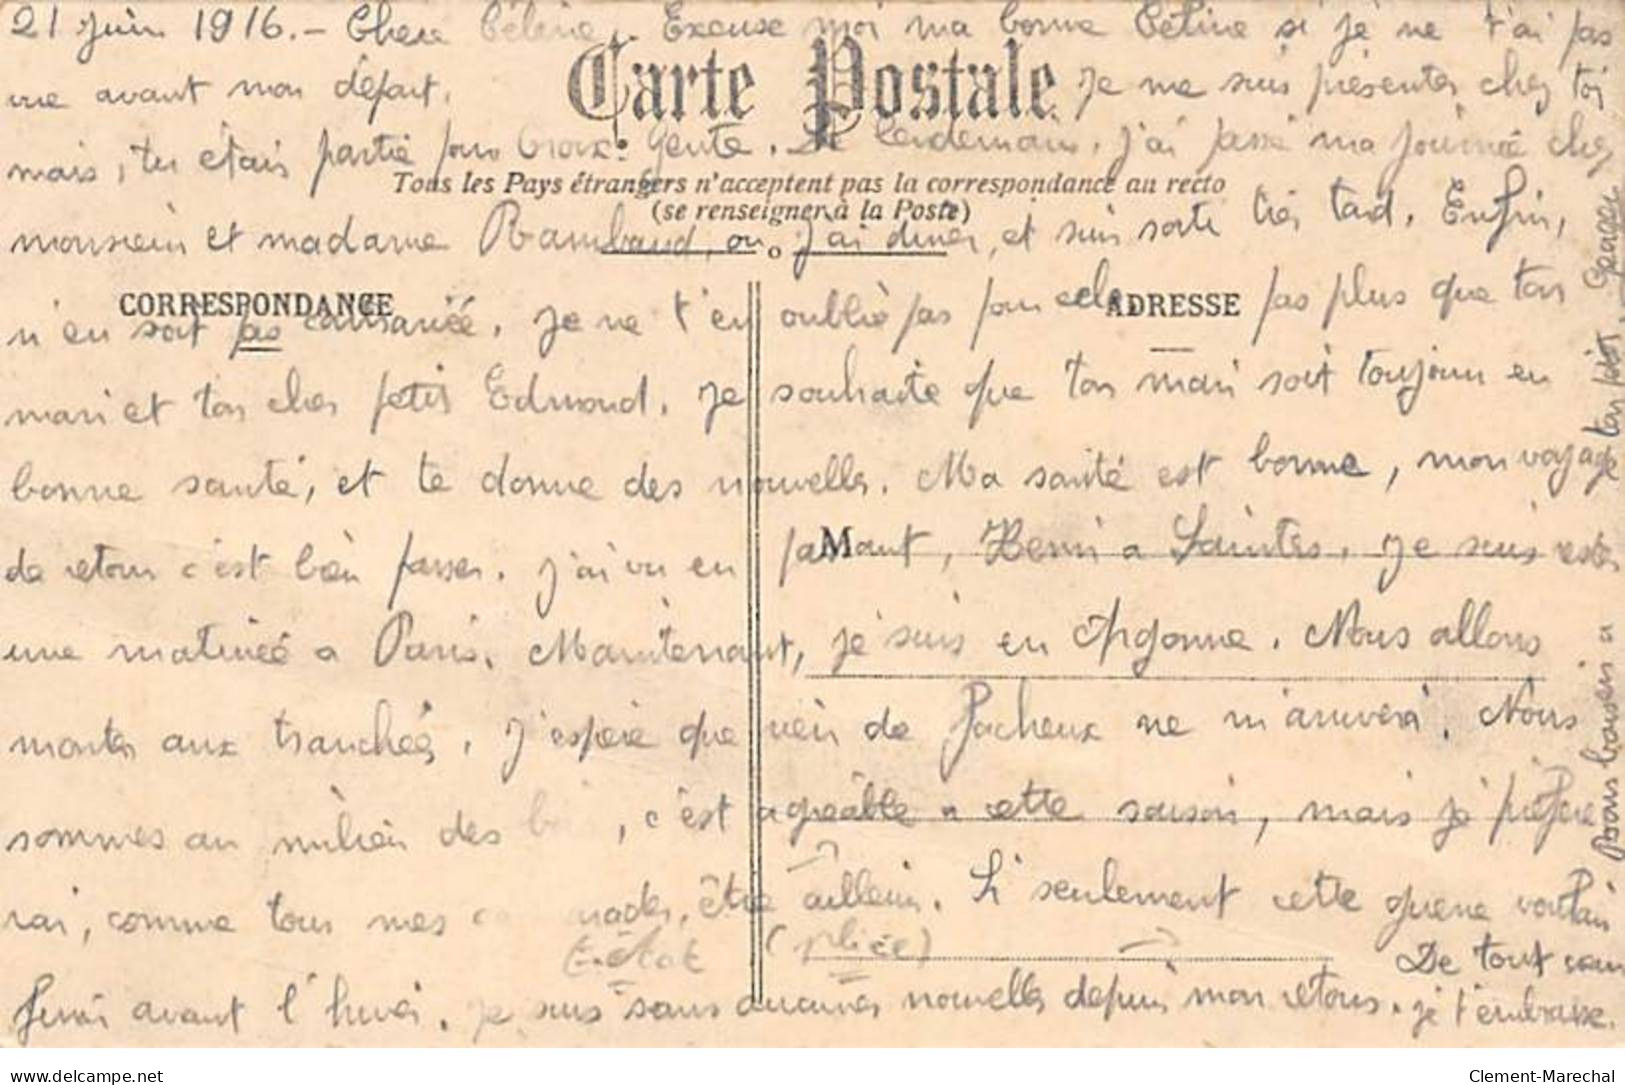 21 Juin 1916. - Chere Céline. Excuse moi ma bonne Céline si je ne t'ai pas
vue avant mon départ.
Carte Postale
Je me suis présenter chez toi
mais, tu étais partie pour Croix. Gente. Le lendemain, j'ai passé ma journée chez
Tous les Pays étrangers n'acceptent pas la correspondance au recto
(se renseigner à la Poste)
monsieur et madame Rambaud, ou j'ai diner, et suis sorti très tard. Enfin,
CORRESPONDANCE
ADRESSE
n'en soit pas contrariée. Je ne t'en oublie pas pour cela pas plus que ton
mari et ton cher petit Edmond. Je souhaite que ton mari soit toujours en
bonne santé, et te donne des nouvelles. Ma santé est bonne, mon voyage
M
de retour c'est bien passer. J'ai vu en passant, Henri a Saintes. Je suis rester
une matinée a Paris. Maintenant, je suis en Argonne. Nous allons
monter aux tranchés. J'espère que rien de facheux ne m'arrivera. Nous
sommes au milieu des bois, c'est agréable a cette saison, mais je préfère
rai, comme tous mes camarades, être ailleurs. Si seulement cette guerre voulait
finir avant l'hiver. Je suis sans aucunes nouvelles depuis mon retour. De tout cœur
je t'embrasse.
Bons baisers a ton petit.
(plice)
Clement-Marechal